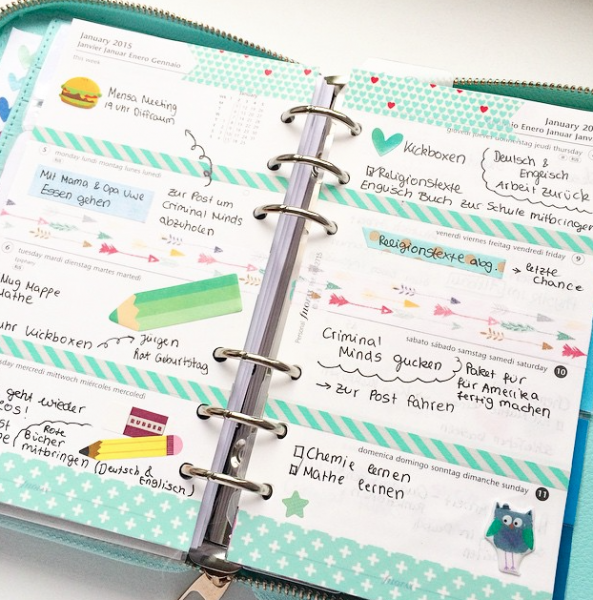 January 2015
Janvier Januar Enero Gennaio
this week
Mensa Meeting
19 Uhr Diffraum
5 monday lundi montag lunes lunedì
Mit Mama & Opa Uwe
Essen gehen
zur Post um
Criminal Minds
abzuholen
6 tuesday mardi dienstag martes martedì
Mug Mappe
Mathe
Uhr Kickboxen
Jürgen
hat Geburtstag
mercredi mittwoch miércoles mercoledì
geht wieder
los!
Rote
Bücher
mitbringen (Deutsch &
Englisch)
RUBBER
January 20
Enero Januar
jeudi donnerstag jueves thursday 8
Kickboxen
Deutsch &
Englisch
Arbeit zurück
Religionstexte
Englisch Buch zur Schule mitbringen
venerdì viernes freitag vendredi friday 9
Religionstexte abg.
→ letzte
Chance
sabato sábado samstag samedi saturday 10
Criminal
Minds gucken
Paket für
für Amerika
fertig machen
→ zur Post fahren
domenica domingo sonntag dimanche sunday 11
Chemie lernen
Mathe lernen